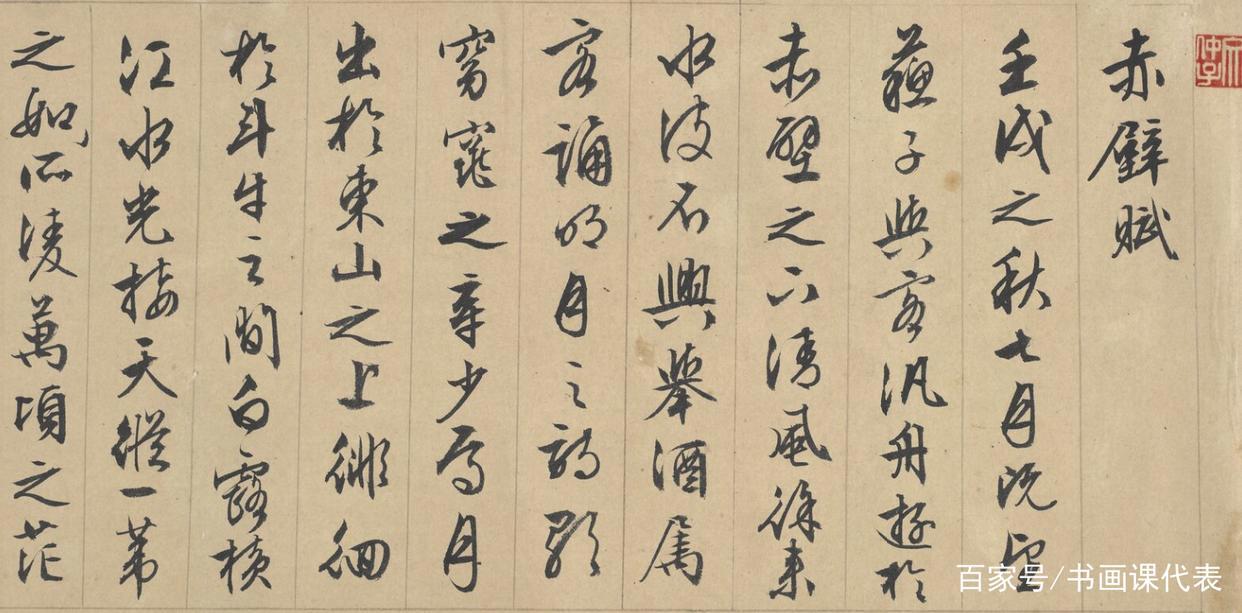 赤壁賦
壬戌之秋七月既望
蘇子與客汎舟遊於
赤壁之下清風徐來
水波不興舉酒属
客誦明月之詩歌
窈窕之章少焉月
出於東山之上徘徊
於斗牛之間白露橫
江水光接天縱一葦
之如所淩萬頃之茫
百家号/书画课代表